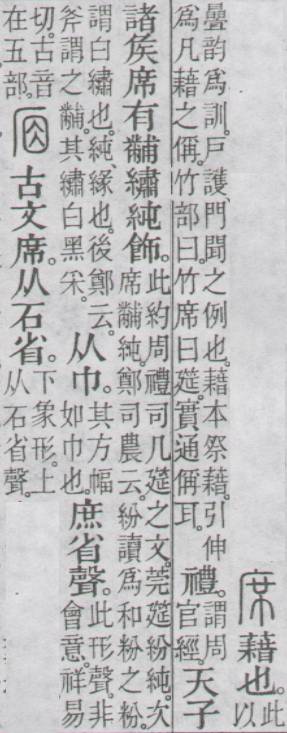 席藉也。此
以
曡韵爲訓。戶護、門聞之例也。藉本祭藉。引伸
爲凡藉之偁。竹部曰。竹席曰筵。實通偁耳。
禮。
謂周
官經。
天子
諸矦席有黼繡純飾。
此約周禮司几筵之文。莞筵紛純。次
席黼純。鄭司農云。紛讀爲和粉之粉。
謂白繡也。純、緣也。後鄭云。
斧謂之黼。其繡白黑采。
从巾。
其方幅
如巾也。
庶省聲。
此形聲非
會意。祥易
切。古音
在五部。
古文席。从石省。
下象形。上
从石省聲。